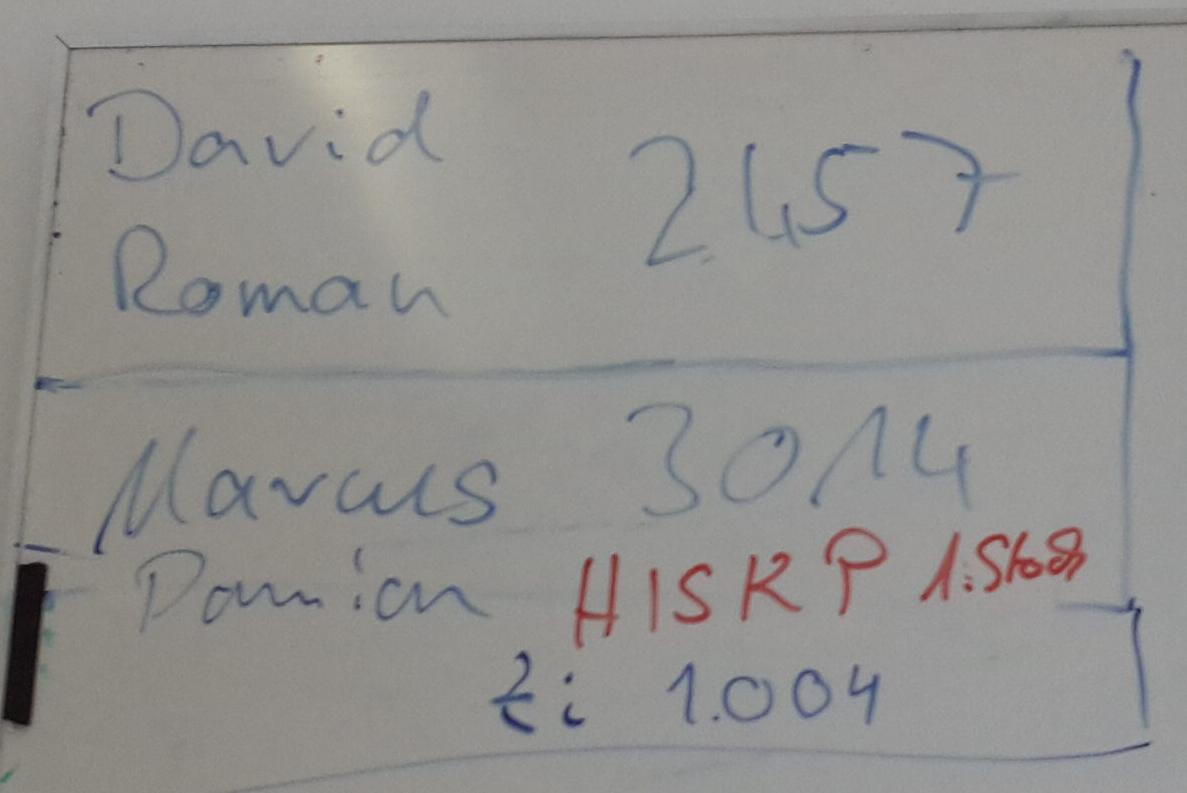 David
Roman 2.457
Marcus 3014
Damian HISKP 1.Stock
Zi 1.004